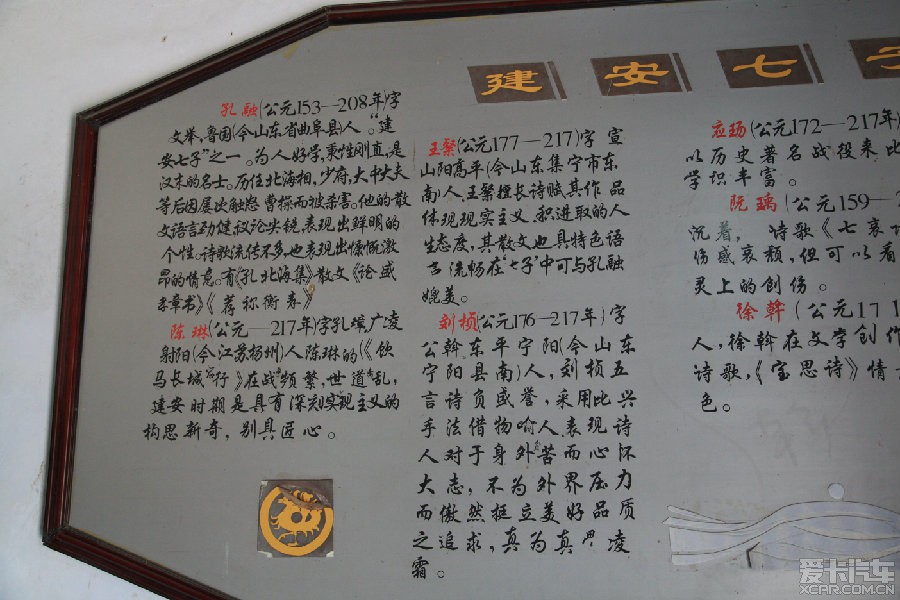 建安七子
孔融(公元153—208年)字
文举,鲁国(今山东省曲阜县)人。"建
安七子"之一。为人好学,秉性刚直,是
汉末的名士。历任北海相,少府,大中大夫
等后因屡次触怒曹操而被杀害。他的散
文语言劲健,议论尖锐,表现出鲜明的
个性。诗歌流传不多,也表现出慷慨激
昂的情意。有《孔北海集》散文《论盛
孝章书》《荐称衡表》
陈琳(公元—217年)字孔璋广凌
射阳(今江苏扬州)人陈琳的《《饮
马长城 行》在战 频繁,世道 乱,
建安时期是具有深刻实现主义的
构思新奇,别具匠心。
王粲(公元177—217)字宣
山阳高平(今山东集宁市东
南)人,王粲擅长诗赋其作品
体现现实主义、积进取的人
生态度,其散文也具特色语
言流畅在"七子"中可与孔融
媲美。
刘桢(公元176—217年)字
公幹东平宁阳(今山东
宁阳县南)人,刘桢五
言诗负盛誉,采用比兴
手法借物喻人表现诗
人对于身外苦而心怀
大志,不为外界压力
而傲然挺立美好品质
之追求,真为真 凌
霜。
应玚(公元172—217年)
以历史著名战役来比
学识丰富。
阮瑀(公元159—2
沉着,诗歌《七哀
伤感哀颓,但可以看
灵上的创伤。
徐幹(公元171
人,徐幹在文学创作
诗歌,《宝思诗》情
色。
爱卡汽车
XCAR.COM.CN